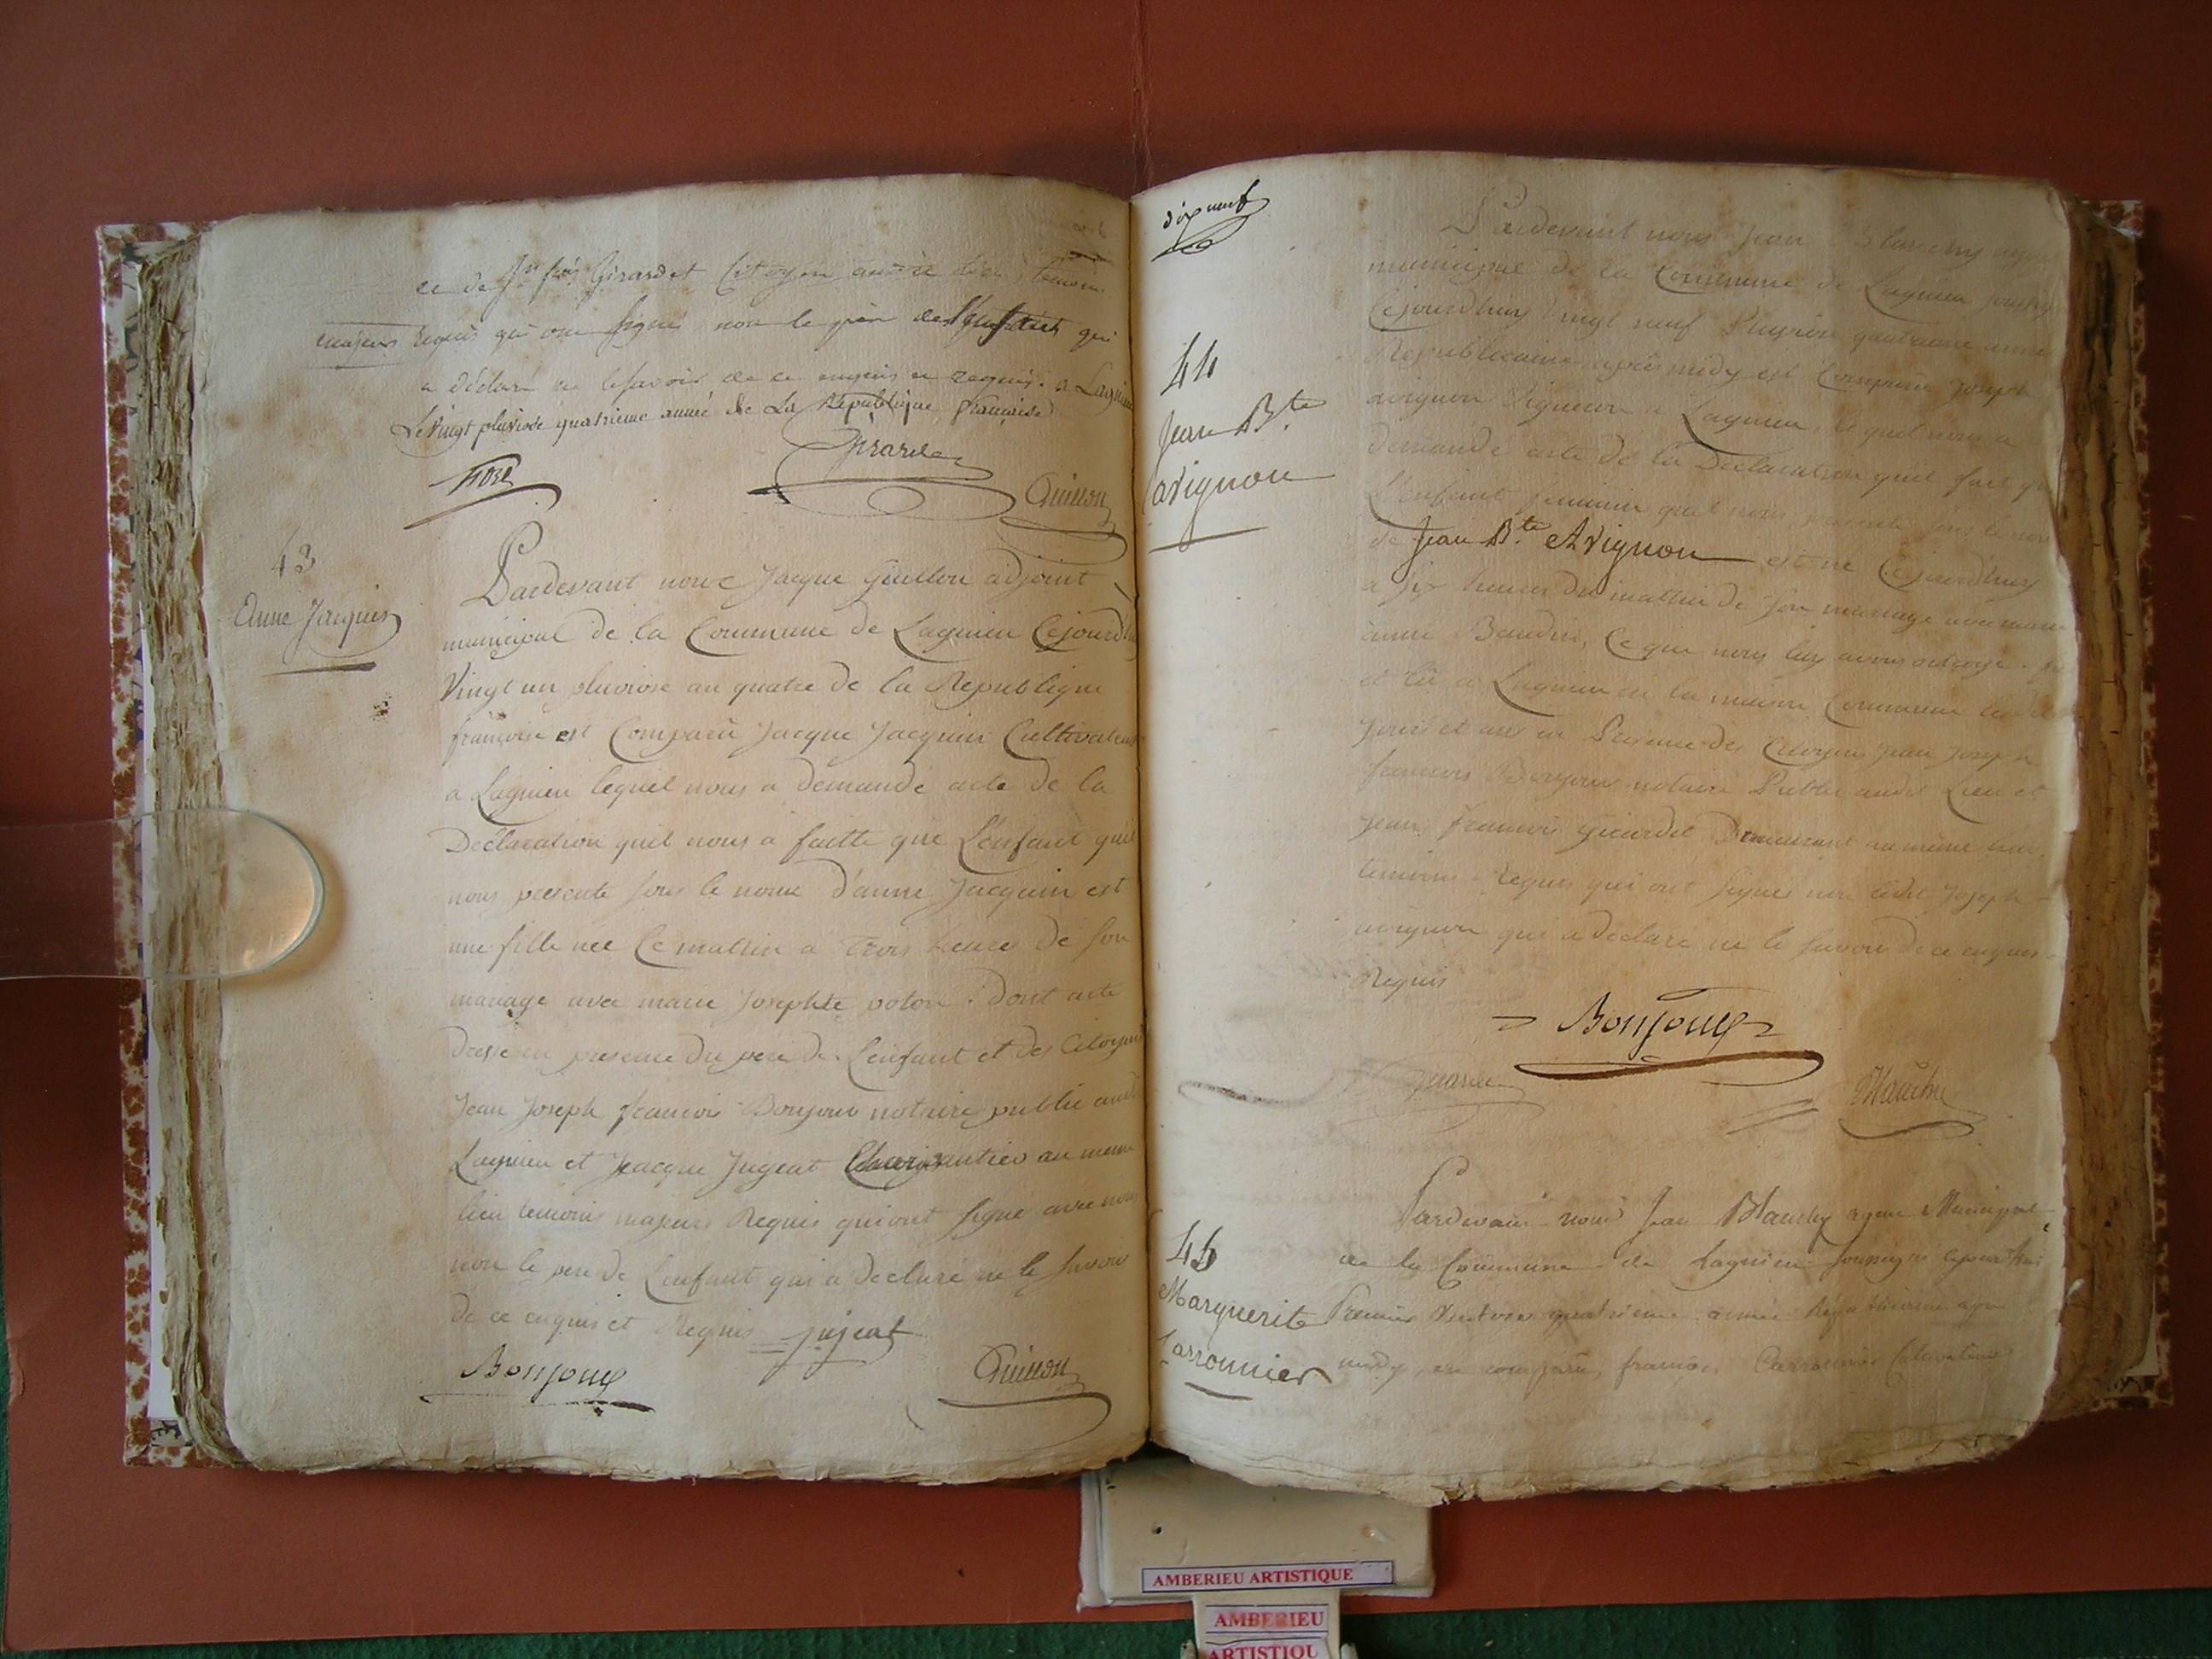 et de Jn fois Girardet Citoyen dudit lieu témoins
majeurs requis qui ont signé non le père de l'enfant qui
a déclaré ne le savoir de ce enquis et requis. a Lagnieu
Le vingt pluviose quatrieme année de La République française
Girardet
Guillon
43
Anne Jacquin
Pardevant nous Jacque Guillon adjoint
municipal de la Commune de Lagnieu Cejourdhuy
Vingt un pluviose an quatre de la Republique
françoise est Comparu Jacque Jacquin Cultivateur
a Lagnieu lequel nous a demandé acte de la
Déclaration quil nous a faitte que L'enfant quil
nous presente sous le nom d'anne Jacquin est
une fille née Ce mattin a Trois heures de son
mariage avec marie Josephte . Dont acte
dressé en presence du pere de L'enfant et des Citoyens
Jean Joseph francois Bonjour notaire public audit
Lagnieu et Jacque Jujeat Charpantier au meme
lieu temoins majeurs Requis qui ont signé avec nous
non le pere de L'enfant qui a declaré ne le savoir
de ce enquis et Requis Jujeat
Bonjour
Guillon
dix neuf
44
Jean Bte
avignon
Pardevant nous Jean Blanchy agent
municipal de la Commune de Lagnieu soussigné
Cejourdhuy vingt neuf Pluviose quatrieme année
Republicaine après midy est Comparu Joseph
avignon Vigneron a Lagnieu, lequel nous a
demandé acte de la Déclaration quil fait que
L'enfant quil nous presente sous le nom
de Jean Bte Avignon est né Cejourdhuy
a six heures du mattin de son mariage avec marie
anne Baudin, Ce que nous luy avons octroyé.
et lu a Lagnieu en la maison Commune les
jours et an en Presence des Citoyens Jean Joseph
francois Bonjour notaire Public audit Lieu et
Jean francois Girardet Demeurant au même lieu
temoins Requis qui ont signés non ledit Joseph
avignon qui a declaré ne le savoir de ce enquis
Requis
Bonjour
Girardet
Blanchy
45
Marguerite
Larronnier
Pardevant nous Jean Blanchy agent Municipal
de la Commune de Lagnieu soussigné cejourdhui
Premier Ventose quatrieme année Républicaine après
midy, est comparu françois Cultivateur
AMBERIEU ARTISTIQUE
AMBERIEU
ARTISTIQU